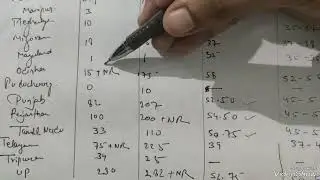 Manipur 3 35-4
Meghalaya 10
Mizoram 19 27 45-5
Nagaland 1 1 52 45-5
Odisha 15+NR 175 58 52-5
Puducherry 0
Punjab 82 207 52.50 45-5
Rajasthan 100 200+NR 54.50 45-5
Tamil Nadu 33 110 50.75 45-5
Telangana 75+NR 225 39 37-4
Tripura 39 25
UP 230 282+NR